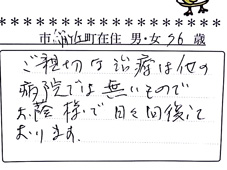 市・浦佐町在住 男・女 76歳
ご親切な治療は他の
病院では無いもので
お蔭様で日々回復して
おります。